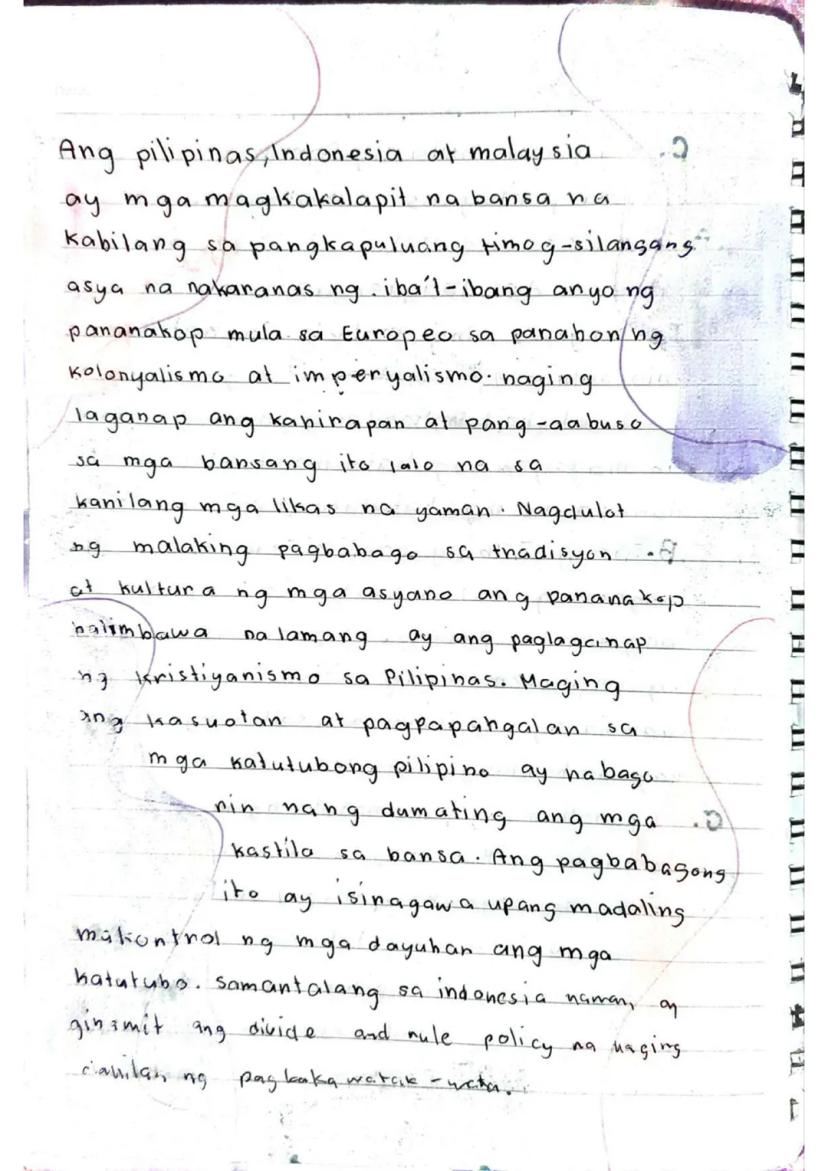 Ang pilipinas, Indonesia at malaysia
ay mga magkakalapit na bansa na
kabilang sa pangkapuluang timog-silangang
asya na nakaranas ng iba't-ibang anyo ng
pananakop mula sa Europeo sa panahon ng
kolonyalismo at imperyalismo. naging
laganap ang kahirapan at pang-aabuso
sa mga bansang ito lalo na sa
kanilang mga likas na yaman. Nagdulot
ng malaking pagbabago sa tradisyon
at kultura ng mga asyano ang pananakop
halimbawa na lamang ay ang paglaganap
ng kristiyanismo sa Pilipinas. Maging
ang kasuotan at pagpapangalan sa
mga katutubong pilipino ay nabago
rin nang dumating ang mga
kastila sa bansa. Ang pagbabagong
ito ay isinagawa upang madaling
makontrol ng mga dayuhan ang mga
katutubo. samantalang sa indonesia naman, ay
ginamit ang divide and rule policy na naging
dahilan ng pagkakawatak-watak.